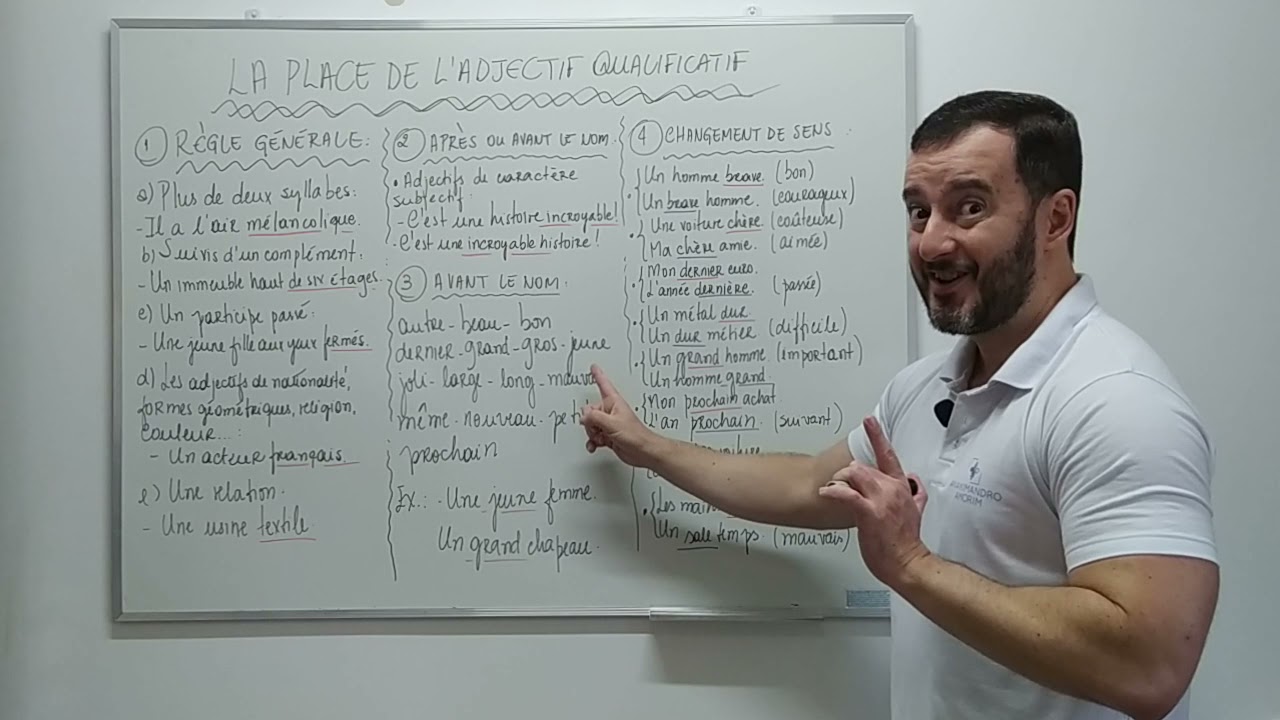 LA PLACE DE L'ADJECTIF QUALIFICATIF
1 RÈGLE GÉNÉRALE:
a) Plus de deux syllabes:
- Il a l'air mélancolique.
b) Suivis d'un complément:
- Un immeuble haut de six étages.
c) Un participe passé:
- Une jeune fille aux yeux fermés.
d) Les adjectifs de nationalité,
formes géométriques, religion,
couleur...:
- Un acteur français.
e) Une relation.
- Une usine textile.
2 APRÈS OU AVANT LE NOM.
• Adjectifs de caractère
subjectif.
- C'est une histoire incroyable!
- C'est une incroyable histoire!
3 AVANT LE NOM:
autre - beau - bon
dernier - grand - gros - jeune
joli - large - long
même - nouveau
prochain
Ex.: - Une jeune femme.
Un grand chapeau.
4 CHANGEMENT DE SENS:
Un homme brave. (bon)
Un brave homme. (courageux)
Une voiture chère. (coûteuse)
Ma chère amie. (aimée)
Mon dernier euro.
L'année dernière. (passée)
Un métal dur.
Un dur métier (difficile)
Un grand homme (important)
Un homme grand.
Mon prochain achat
L'an prochain. (suivant)
Les
Un sale temps. (mauvais)
AMORIM